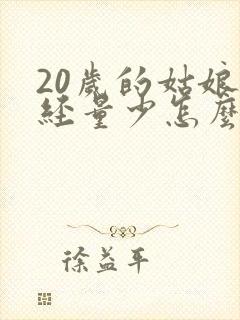 20歲的姑娘
經量少怎麼
徐益平